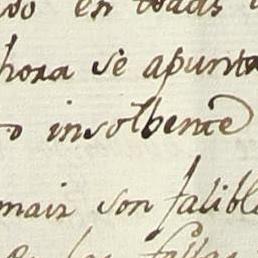 en todas
hora se apunta
o insolbente
mair son falibl